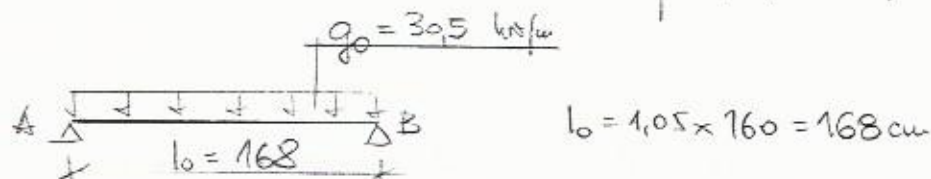 g₀ = 30,5 kN/m
A B
l₀ = 168
l₀ = 1,05 × 160 = 168 cm